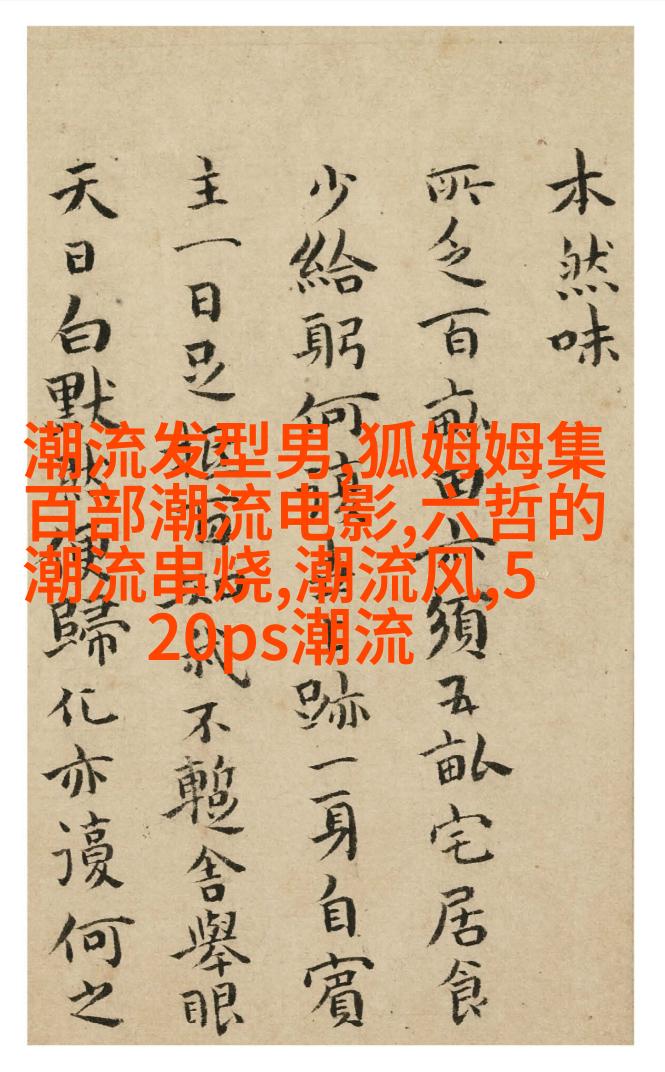 潮流发型男,狐姆姆集
百部潮流电影,六哲的
潮流串烧,潮流风,5
20ps潮流
本然味
所乏百畝田亦須五畝宅居食
少給躬何跡一身自賓
主一日足拭不暫舍舉眼
天日白默然便歸化亦謾何之